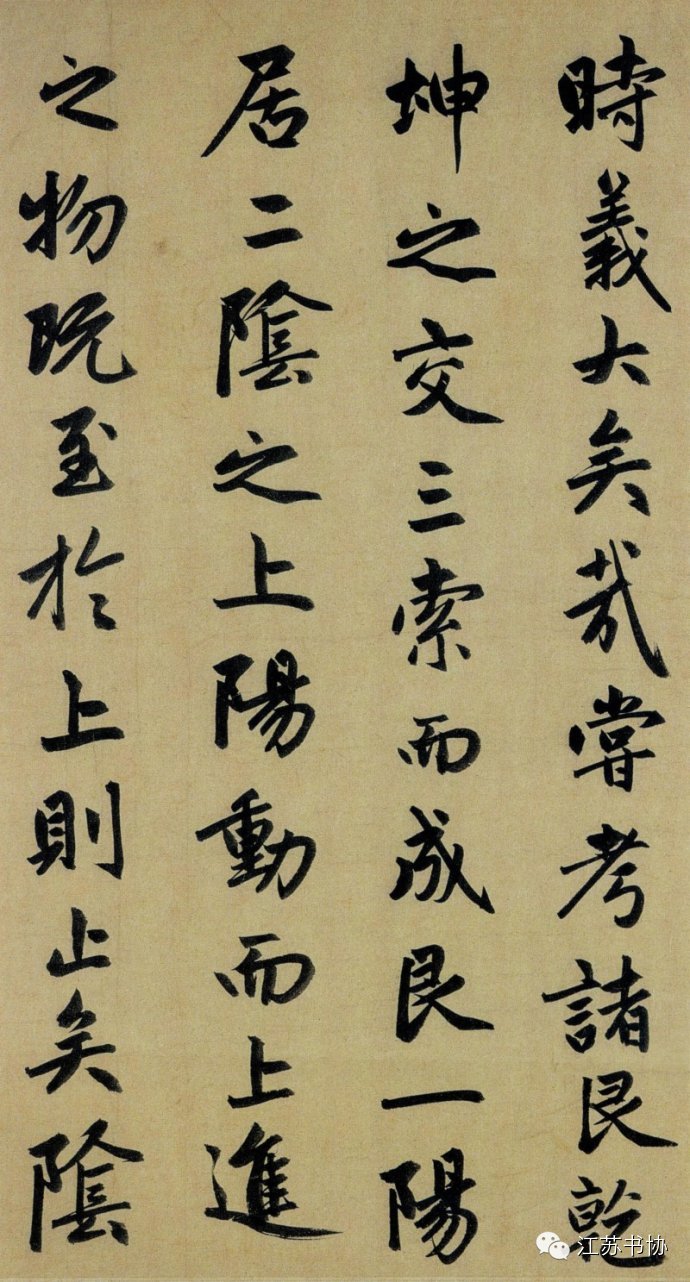 時義大矣哉嘗考諸艮乾
坤之交三索而成艮一陽
居二陰之上陽動而上進
之物既至於上則止矣陰
江苏书协